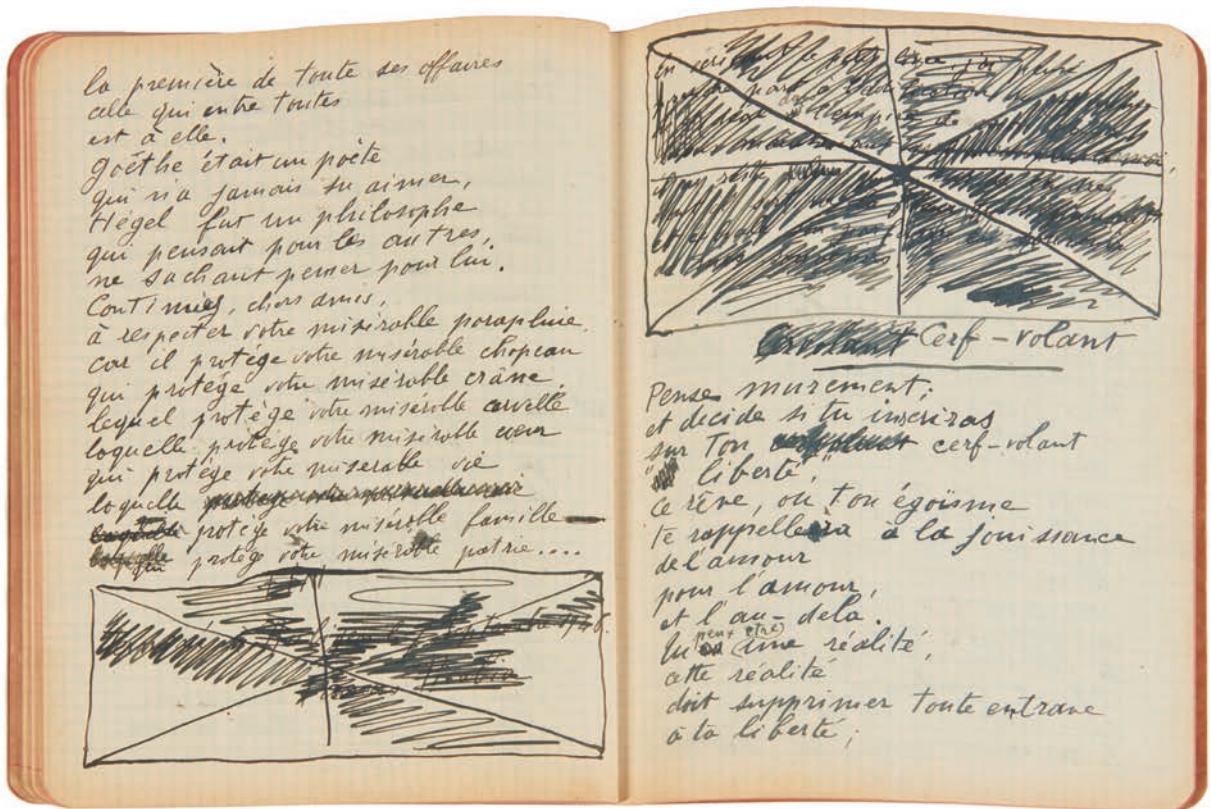 la première de toute ses affaires
celle qui entre toutes
est à elle.
Goëthe était un poète
qui n'a jamais su aimer,
Hégel fut un philosophe
qui pensait pour les autres,
ne sachant penser pour lui.
Continuez, chers amis,
à respecter votre misérable parapluie.
car il protége votre misérable chapeau
qui protége votre misérable crâne,
lequel protége votre misérable cervelle
laquelle protége votre misérable cœur
qui protége votre misérable vie
laquelle
protége votre misérable famille
qui protége votre misérable patrie....
septembre 1946.
j'ai pensé
Cerf-volant
Pense murement;
et decide si tu inscriras
sur Ton cerf-volant
"liberté,"
ce rêve, ou ton égoïsme
te rappellera à la jouissance
de l'amour
pour l'amour,
et l'au-dela.
peut être
une réalité,
cette réalité
doit supprimer toute entrave
à ta liberté;